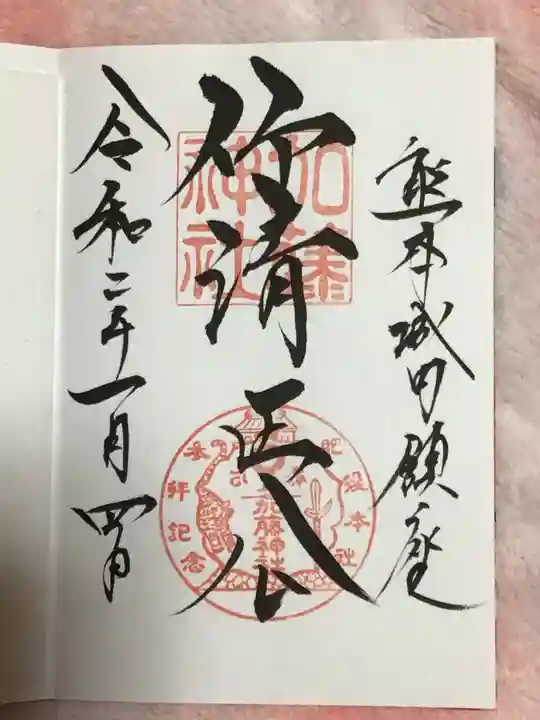 熊本城内鎮座
清正公
加藤神社
肥後本社
加藤神社
参拝記念
令和二年一月四日